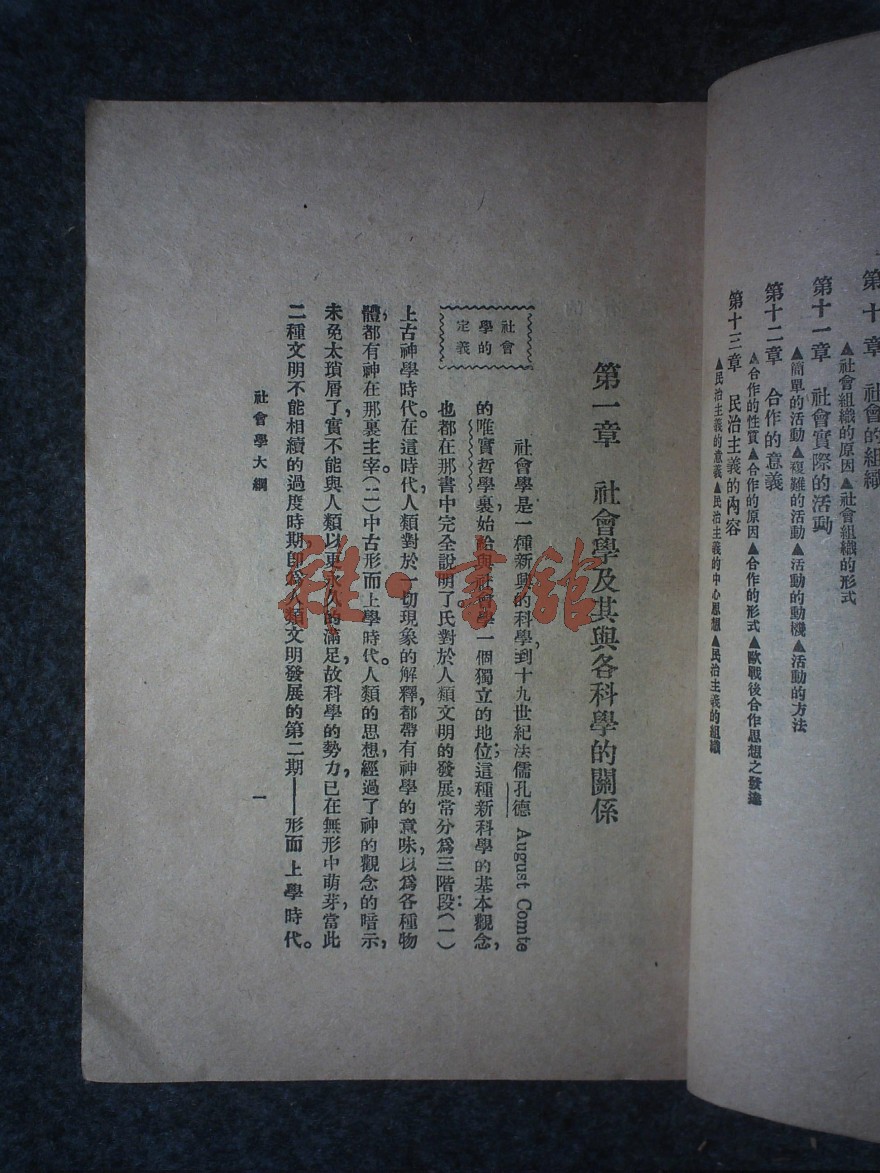 第十章 社會的組織
▲社會組織的原因▲社會組織的形式
第十一章 社會實際的活動
▲簡單的活動▲複雜的活動▲活動的動機▲活動的方法
第十二章 合作的意義
▲合作的性質▲合作的原因▲合作的形式▲歐戰後合作思想之發達
第十三章 民治主義的內容
▲民治主義的意義▲民治主義的中心思想▲民治主義的組織
第一章 社會學及其與各科學的關係
社會學的定義
社會學是一種新興的科學,到十九世紀法儒孔德 August Comte
的唯實哲學裏,始給與社會學一個獨立的地位;這種新科學的基本觀念,
也都在那書中完全說明了。氏對於人類文明的發展,常分爲三階段:(一)
上古神學時代。在這時代,人類對於一切現象的解釋,都帶有神學的意味,以爲各種物
體,都有神在那裏主宰。(二)中古形而上學時代。人類的思想,經過了神的觀念的暗示,
未免太瑣屑了,實不能與人類以更永久的滿足,故科學的勢力,已在無形中萌芽,當此
二種文明不能相續的過度時期,卽爲人類文明發展的第二期——形而上學時代。
社會學大綱
一
雜·書館